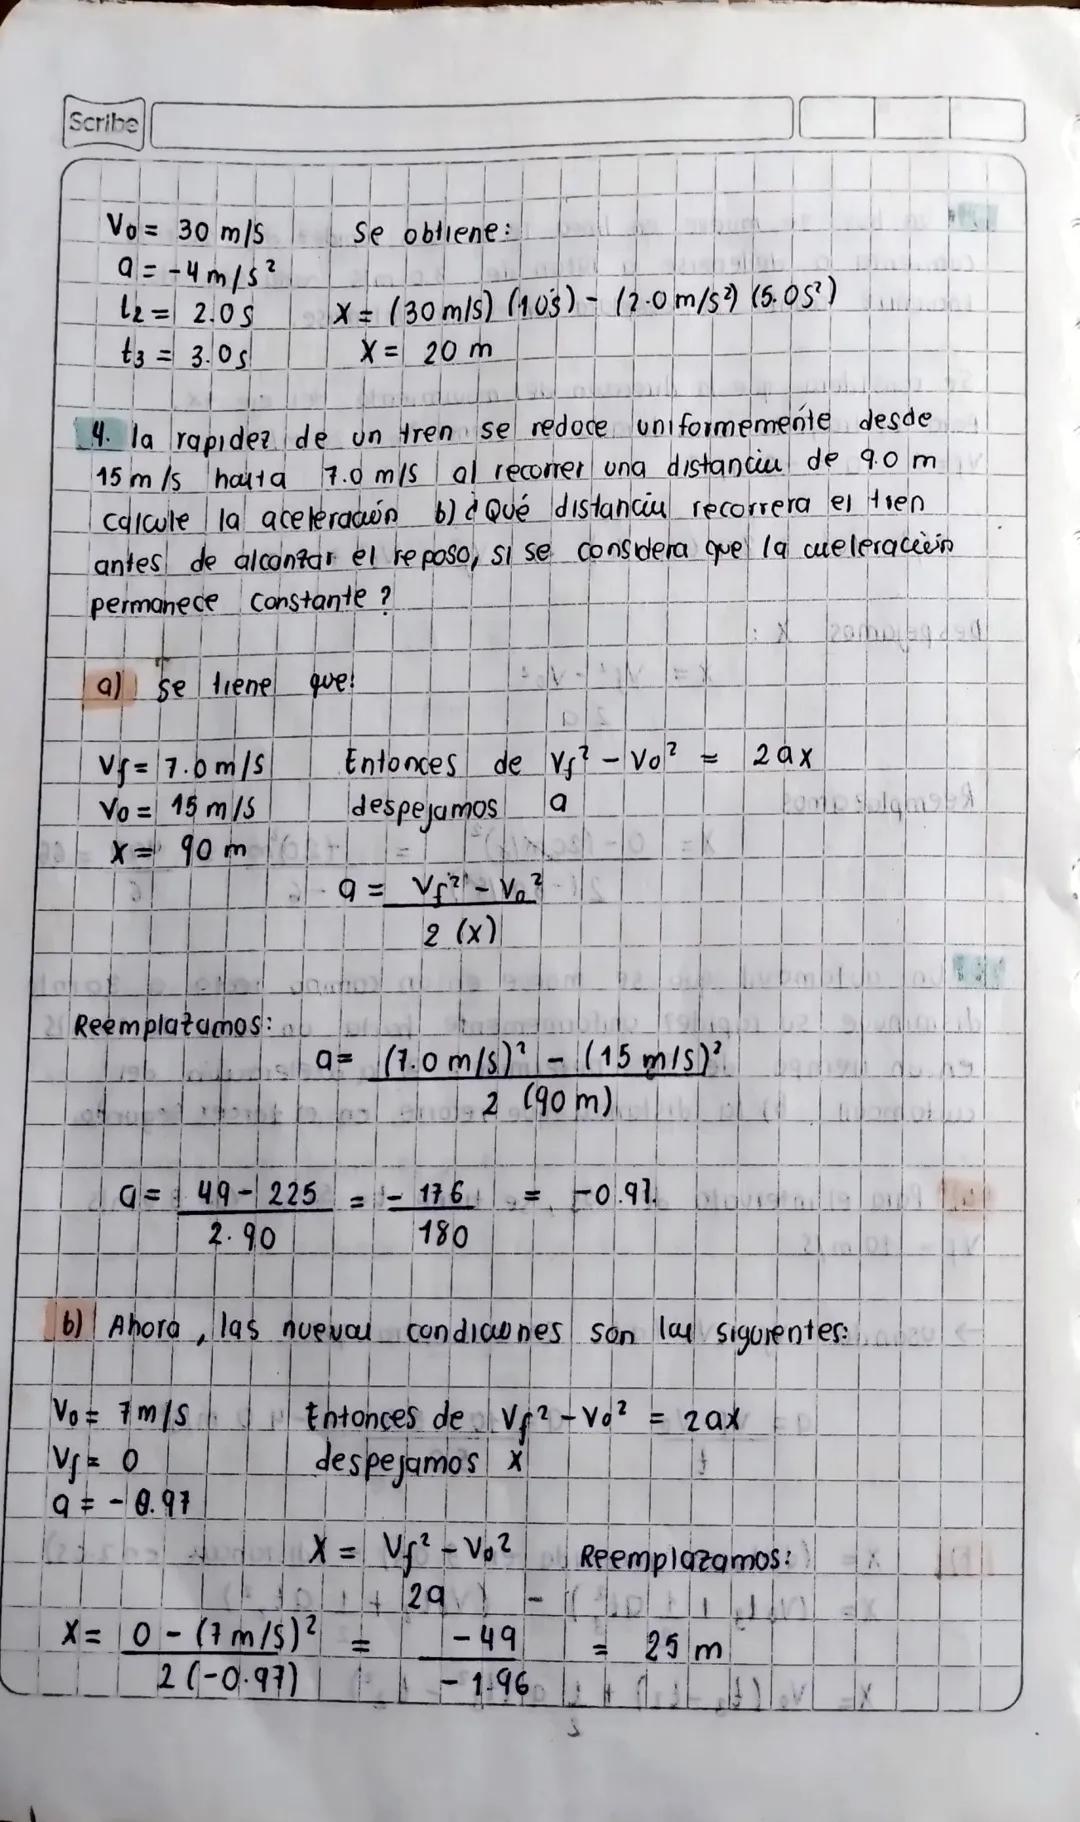 Scribe
V₀ = 30 m/s Se obtiene:
a = -4 m/s²
t₂ = 2.0 s X = (30 m/s) (1.0s) - (2.0 m/s²) (5.0 s²)
t₃ = 3.0 s X = 20 m
4. la rapidez de un tren se reduce uniformemente desde
15 m/s hasta 7.0 m/s al recorrer una distancia de 90 m
calcule la aceleración b) ¿Qué distancia recorrera el tren
antes de alcanzar el reposo, si se considera que la aceleración
permanece constante?
a) se tiene que:
Vf = 7.0 m/s Entonces de Vf² - V₀² = 2ax
V₀ = 15 m/s despejamos a
X = 90 m
a = Vf² - V₀²
2 (x)
Reemplazamos:
a = (7.0 m/s)² - (15 m/s)²
2 (90 m)
a = 49 - 225 = - 176 = -0.97.
2.90 180
b) Ahora, las nuevas condiciones son las siguientes:
V₀ = 7 m/s Entonces de Vf² - V₀² = 2ax
Vf = 0 despejamos x
a = -0.97
X = Vf² - V₀² Reemplazamos:
2a
X = 0 - (7 m/s)² = -49 = 25 m
2(-0.97) -1.96